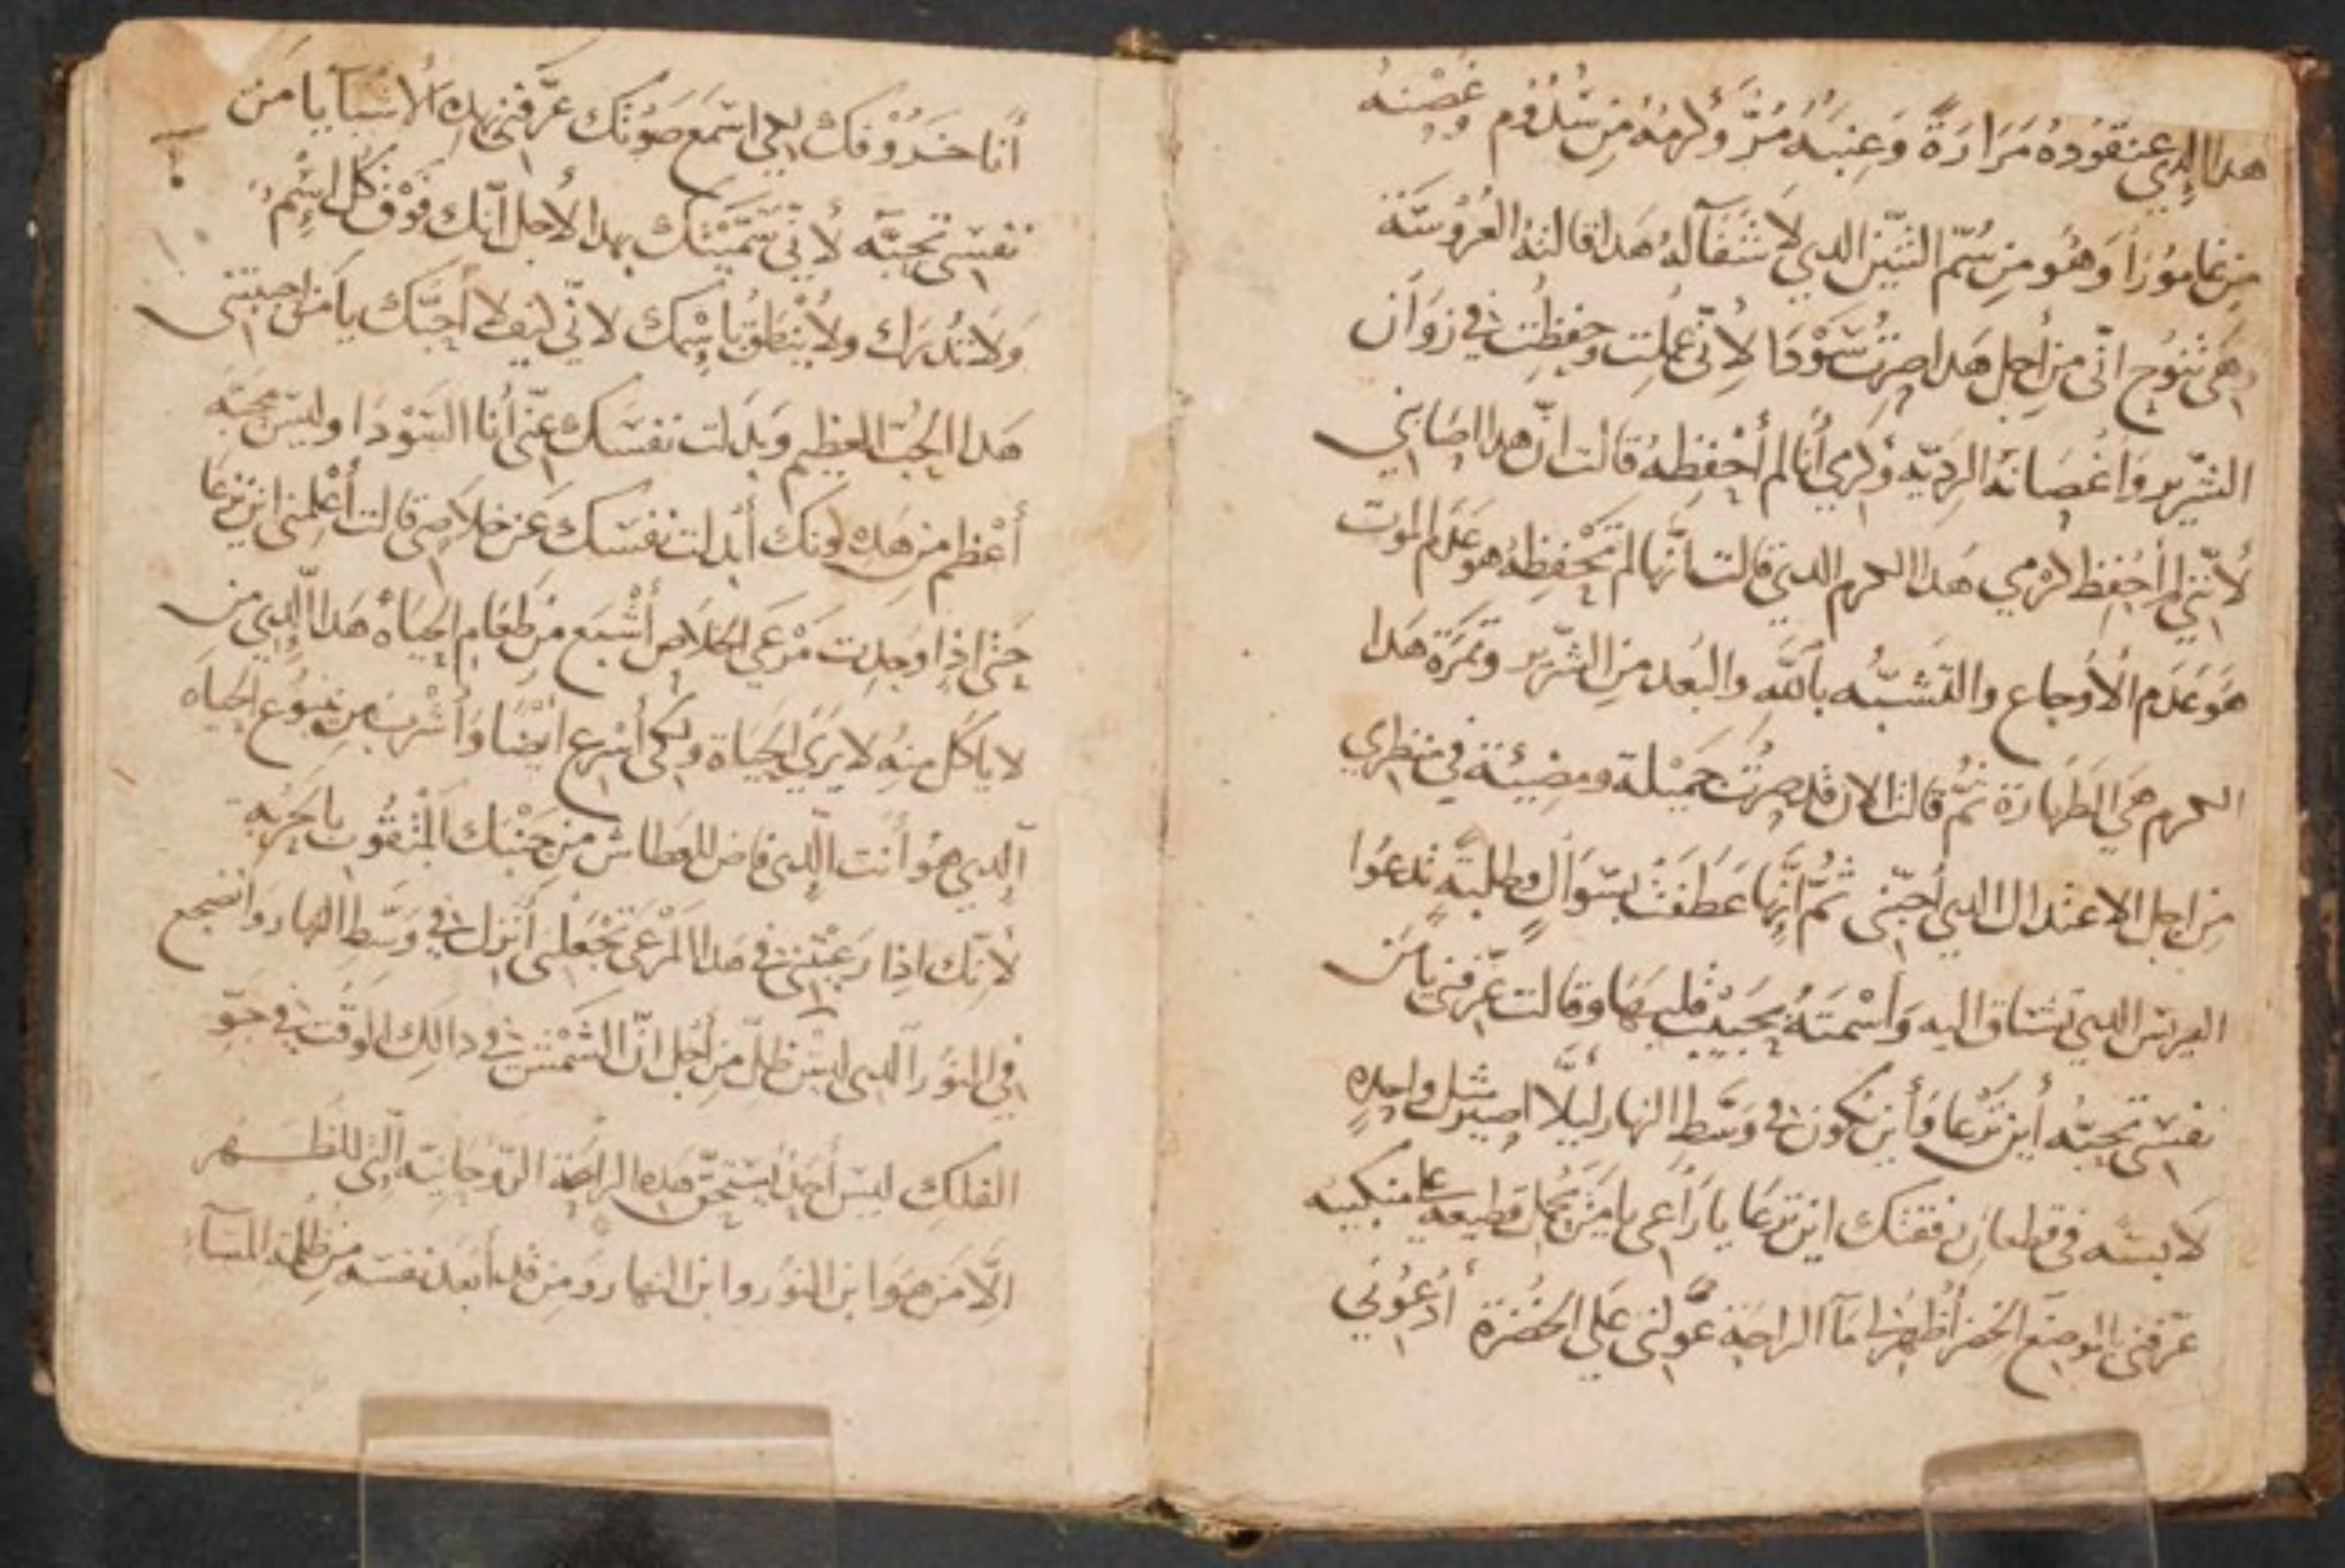 هدا الدي عنقوده مَرَارَةً وَعِنَبَهُ مُرّ وكرمه من سُدُوم وغصنه
من غامورا وَهُو مِن سُمّ التنين الدي لا شفآ له هدا قالته العروسَة
وهي تنوح انّي من أجل هدا صرت سَوْدَا لأنّي عملت وحفظت في زوان
الشرّير وَاغصانه الرديّه وكرمي أنا لم أحفظه قالت انّ هدا اصابني
لأنّني لم أحفظ كرمي هَدا الكرم الدي قالت انّها لم تحفظه هو عدم الموت
هَوَ عَدم الأوجاع والتشبُّه باللَّه والبعد من الشرّير وثمرَة هَدا
الكرم هي الطهارة ثمّ قالت الان قد صرت جميْلة ومضيئة في منظري
من اجل الاعتدال الدي أحبّني ثمّ انّها عَطفت بسوال وطلبَة تدعوا
العريس الدي تشتاق اليه وَأسْمَتهُ بحبيب قلبهَا وقالت عَرّفني يا من
نفسي تحبّه أين ترْعا وَأين تكون في وسَط النهار ليلّا اصير مثل واحدهٍ
لابسَه في قطعان رفقتك اين ترعَا يا رَاعي يا من يحمل قطيعه على منكبيه
عرّفني الموضع الخضر أظهر لي مآ الراحَة عوّلني على الخضرَة أدعُوني
أنا خَرُوْفك لكي اسمَع صَوْتك عَرّفني بهده الأشيآ يا مَن
نفسي تحبّه لأنّي سَمَّيْتك بهدا لأجل أنّك فوْق كل اسْمٍ
وَلا تُدرَك ولا يُنْطَق باسْمِك لانّي كيف لا أحبّك يا مَن احببتني
هَدا الحُبّ العظيم وَبَدلت نفسَك عنّي أنا السَوْدَا وليسَ محبَّه
أعْظم من هَدِه كونك أبْدلت نفسَك عَن خلاصي قالت أعْلمني اين ترعا
حَتّى اذا وجدت مَرْعى الخلاص أشْبَع من طعَام الحيَاهْ هَدا الّدي من
لا يأكل منهُ لا يرَي الحيَاة ولكي أسْرع ايضًا وَأشْرب من ينبوع الحيَاه
الّدي هوُ أنت الّدي فاض للعطاش من جَنْبك المثقوب بالحربة
لأنّك اذا رَعَيْتني في هَدا المَرْعى تَجْعَلني أنزل في وَسَط النهار وَانضجع
في النوُر الّدي ليسْ ظلّ من أجْل انّ الشمْس في دالك الوَقت في جَوّ
الفلك ليسَ أحَد يَستحقّ هَده الراحَة الرّوحَانيّه الّتي للظهر
الّا مَن هوَ ابن النوُر وابن النهار وَمن قد أبعَد نفسَه من ظلمة المسَآء